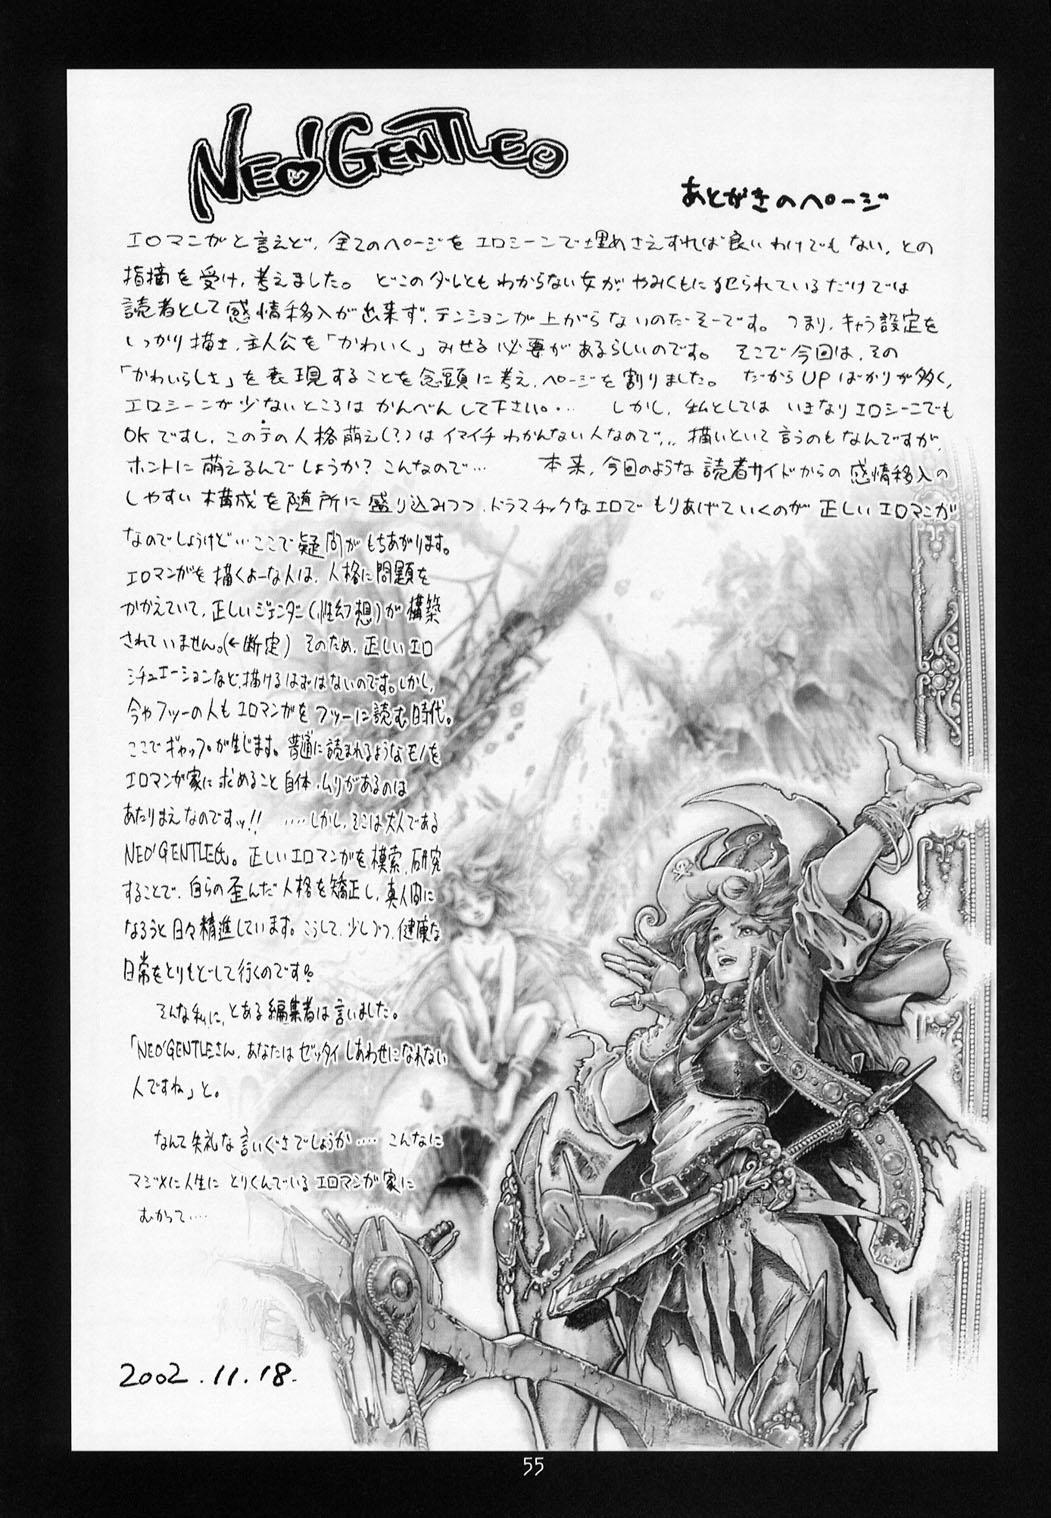 NEO'GENTLE
あとがきのページ
エロマンガと言えど、全てのページをエロシーンで埋めさえすれば良いわけでもない、との
指摘を受け、考えました。 どこのダレともわからない女が、やみくもに犯られているだけでは
読者として感情移入が出来ず、テンションが上がらないのだそーです。 つまり、キャラ設定を
しっかり描き、主人公を「かわいく」みせる必要があるらしいのです。 そこで今回は、その
「かわいらしさ」を表現することを念頭に考え、ページを割りました。 だからUPばかりが多く、
エロシーンが少ないところはかんべんして下さい。… しかし、私としてはいきなりエロシーンでも
OKですし、この手の人格萌え(?)はイマイチわかんない人なので… 描いといて言うのもなんですが、
ホントに萌えるんでしょうか? こんなので… 本来、今回のような読者サイドからの感情移入の
しやすい構成を随所に盛り込みつつ、ドラマチックなエロでもりあげていくのが正しいエロマンガ
なのでしょうけど…ここで疑問がもちあがります。
エロマンガを描くよーな人は、人格に問題を
かかえていて、正しいジェンダー(性幻想)が構築
されていません。(←断定) そのため、正しいエロ
シチュエーションなど、描けるはずはないのです。しかし、
今やフツーの人もエロマンガをフツーに読む時代。
ここでギャップが生じます。普通に読まれるようなモノを
エロマンガ家に求めること自体、ムリがあるのは
あたりまえなのですッ!! ‥‥しかし、そこは大人である
NEO'GENTLE氏。正しいエロマンガを模索、研究
することで、自らの歪んだ人格を矯正し、真人間に
なろうと日々精進しています。こうして、少しづつ、健康な
日常をとりもどして行くのです。
そんな私に、とある編集者は言いました。
「NEO'GENTLEさん、あなたはゼッタイしあわせになれない
人ですね」と。
なんて失礼な言いぐさでしょうか‥‥ こんなに
マジメに人生にとりくんでいるエロマンガ家に
むかって‥‥
2002.11.18.
55